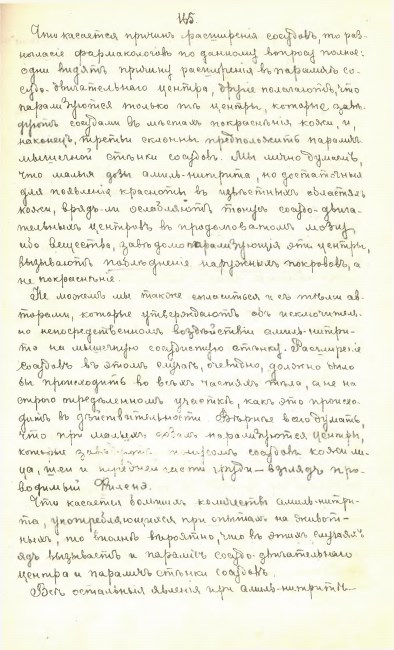 145.
Что касается причинъ расширенія сосудовъ, то раз-
ногласіе фармакологовъ по данному вопросу полное:
одни видятъ причину расширенія въ параличѣ со-
судо-двигательнаго центра, другіе полагаютъ, что
парализуются только тѣ центры, которые завѣ-
дуютъ сосудами въ мѣстахъ покраснѣнія кожи, и,
наконецъ, третьи склонны предположить параличъ
мышечной стѣнки сосудовъ. Мы лично думаемъ,
что малыя дозы амиль-нитрита, но достаточныя
для появленія красноты въ извѣстныхъ областяхъ
кожи, врядъ-ли ослабляютъ тонусъ сосудо-двига-
тельныхъ центровъ въ продолговатомъ мозгу,
ибо вещества, завѣдомо парализующія эти центры,
вызываютъ поблѣднѣніе наружныхъ покрововъ, а
не покраснѣніе.
Не можемъ мы также согласиться и съ тѣми ав-
торами, которые утверждаютъ объ исключитель-
но непосредственномъ воздѣйствіи амиль-нитри-
та на мышечную сосудистую стѣнку. Расширеніе
сосудовъ въ этомъ случаѣ, очевидно, должно было
бы происходить во всѣхъ частяхъ тѣла, а не на
строго опредѣленномъ участкѣ, какъ это происхо-
дитъ въ дѣйствительности. Вѣрнѣе всего думать,
что при малыхъ дозахъ парализуются центры,
которые завѣдуютъ тонусомъ сосудовъ кожи ли-
ца, шеи и передней части груди — взглядъ про-
водимый Филенэ.
Что касается большихъ количествъ амиль-нитри-
та, употребляющихся при опытахъ на живот-
ныхъ, то вполнѣ вѣроятно, что въ этихъ случаяхъ
ядъ вызываетъ и параличъ сосудо-двигательнаго
центра и параличъ стѣнки сосудовъ.
Всѣ остальныя явленія при амиль-нитритѣ—